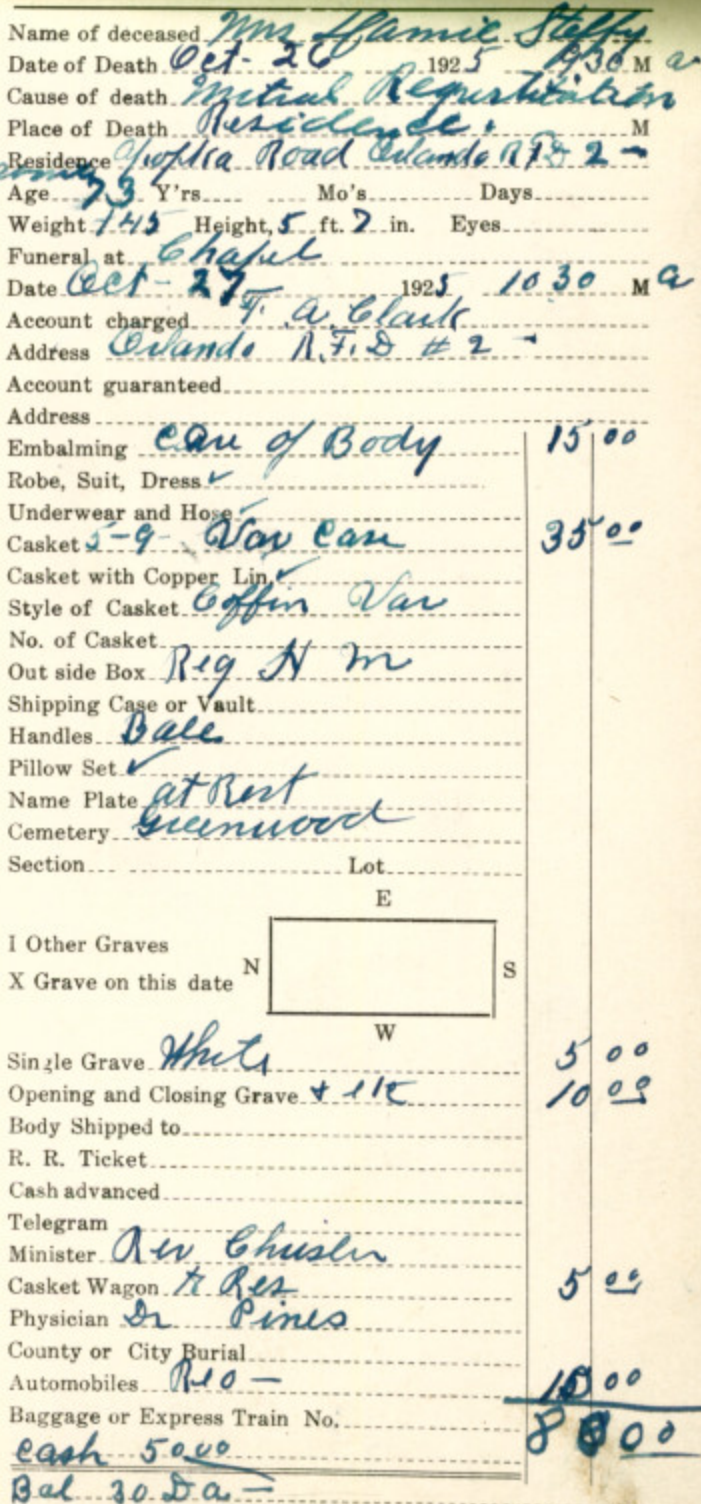 Name of deceased Mrs Mamie Steffy
Date of Death Oct - 26 1925 30 M a
Cause of death Mitral Regurtitation
Place of Death Residence. M
Residence Apopka Road Orlando R F D 2 -
Age 73 Y'rs Mo's Days
Weight 145 Height, 5 ft. 7 in. Eyes
Funeral at Chapel
Date Oct - 27 1925 10 30 M a
Account charged T. A. Clark
Address Orlando R.F.D # 2 -
Account guaranteed
Address
Embalming Care of Body 15 00
Robe, Suit, Dress ✓
Underwear and Hose ✓
Casket 5-9- Var Case 35 00
Casket with Copper Lin. ✓
Style of Casket Coffin Var
No. of Casket
Out side Box Reg H M
Shipping Case or Vault
Handles Bale
Pillow Set ✓
Name Plate at Rest
Cemetery Greenwood
Section Lot
E
I Other Graves
X Grave on this date N S
W
Single Grave White 5 00
Opening and Closing Grave 10 00
Body Shipped to
R. R. Ticket
Cash advanced
Telegram
Minister Rev
Casket Wagon to Res 5 00
Physician Dr Pines
County or City Burial
Automobiles Reo - 10 00
Baggage or Express Train No. 80 00
Cash 50 00
Bal 30 Da -